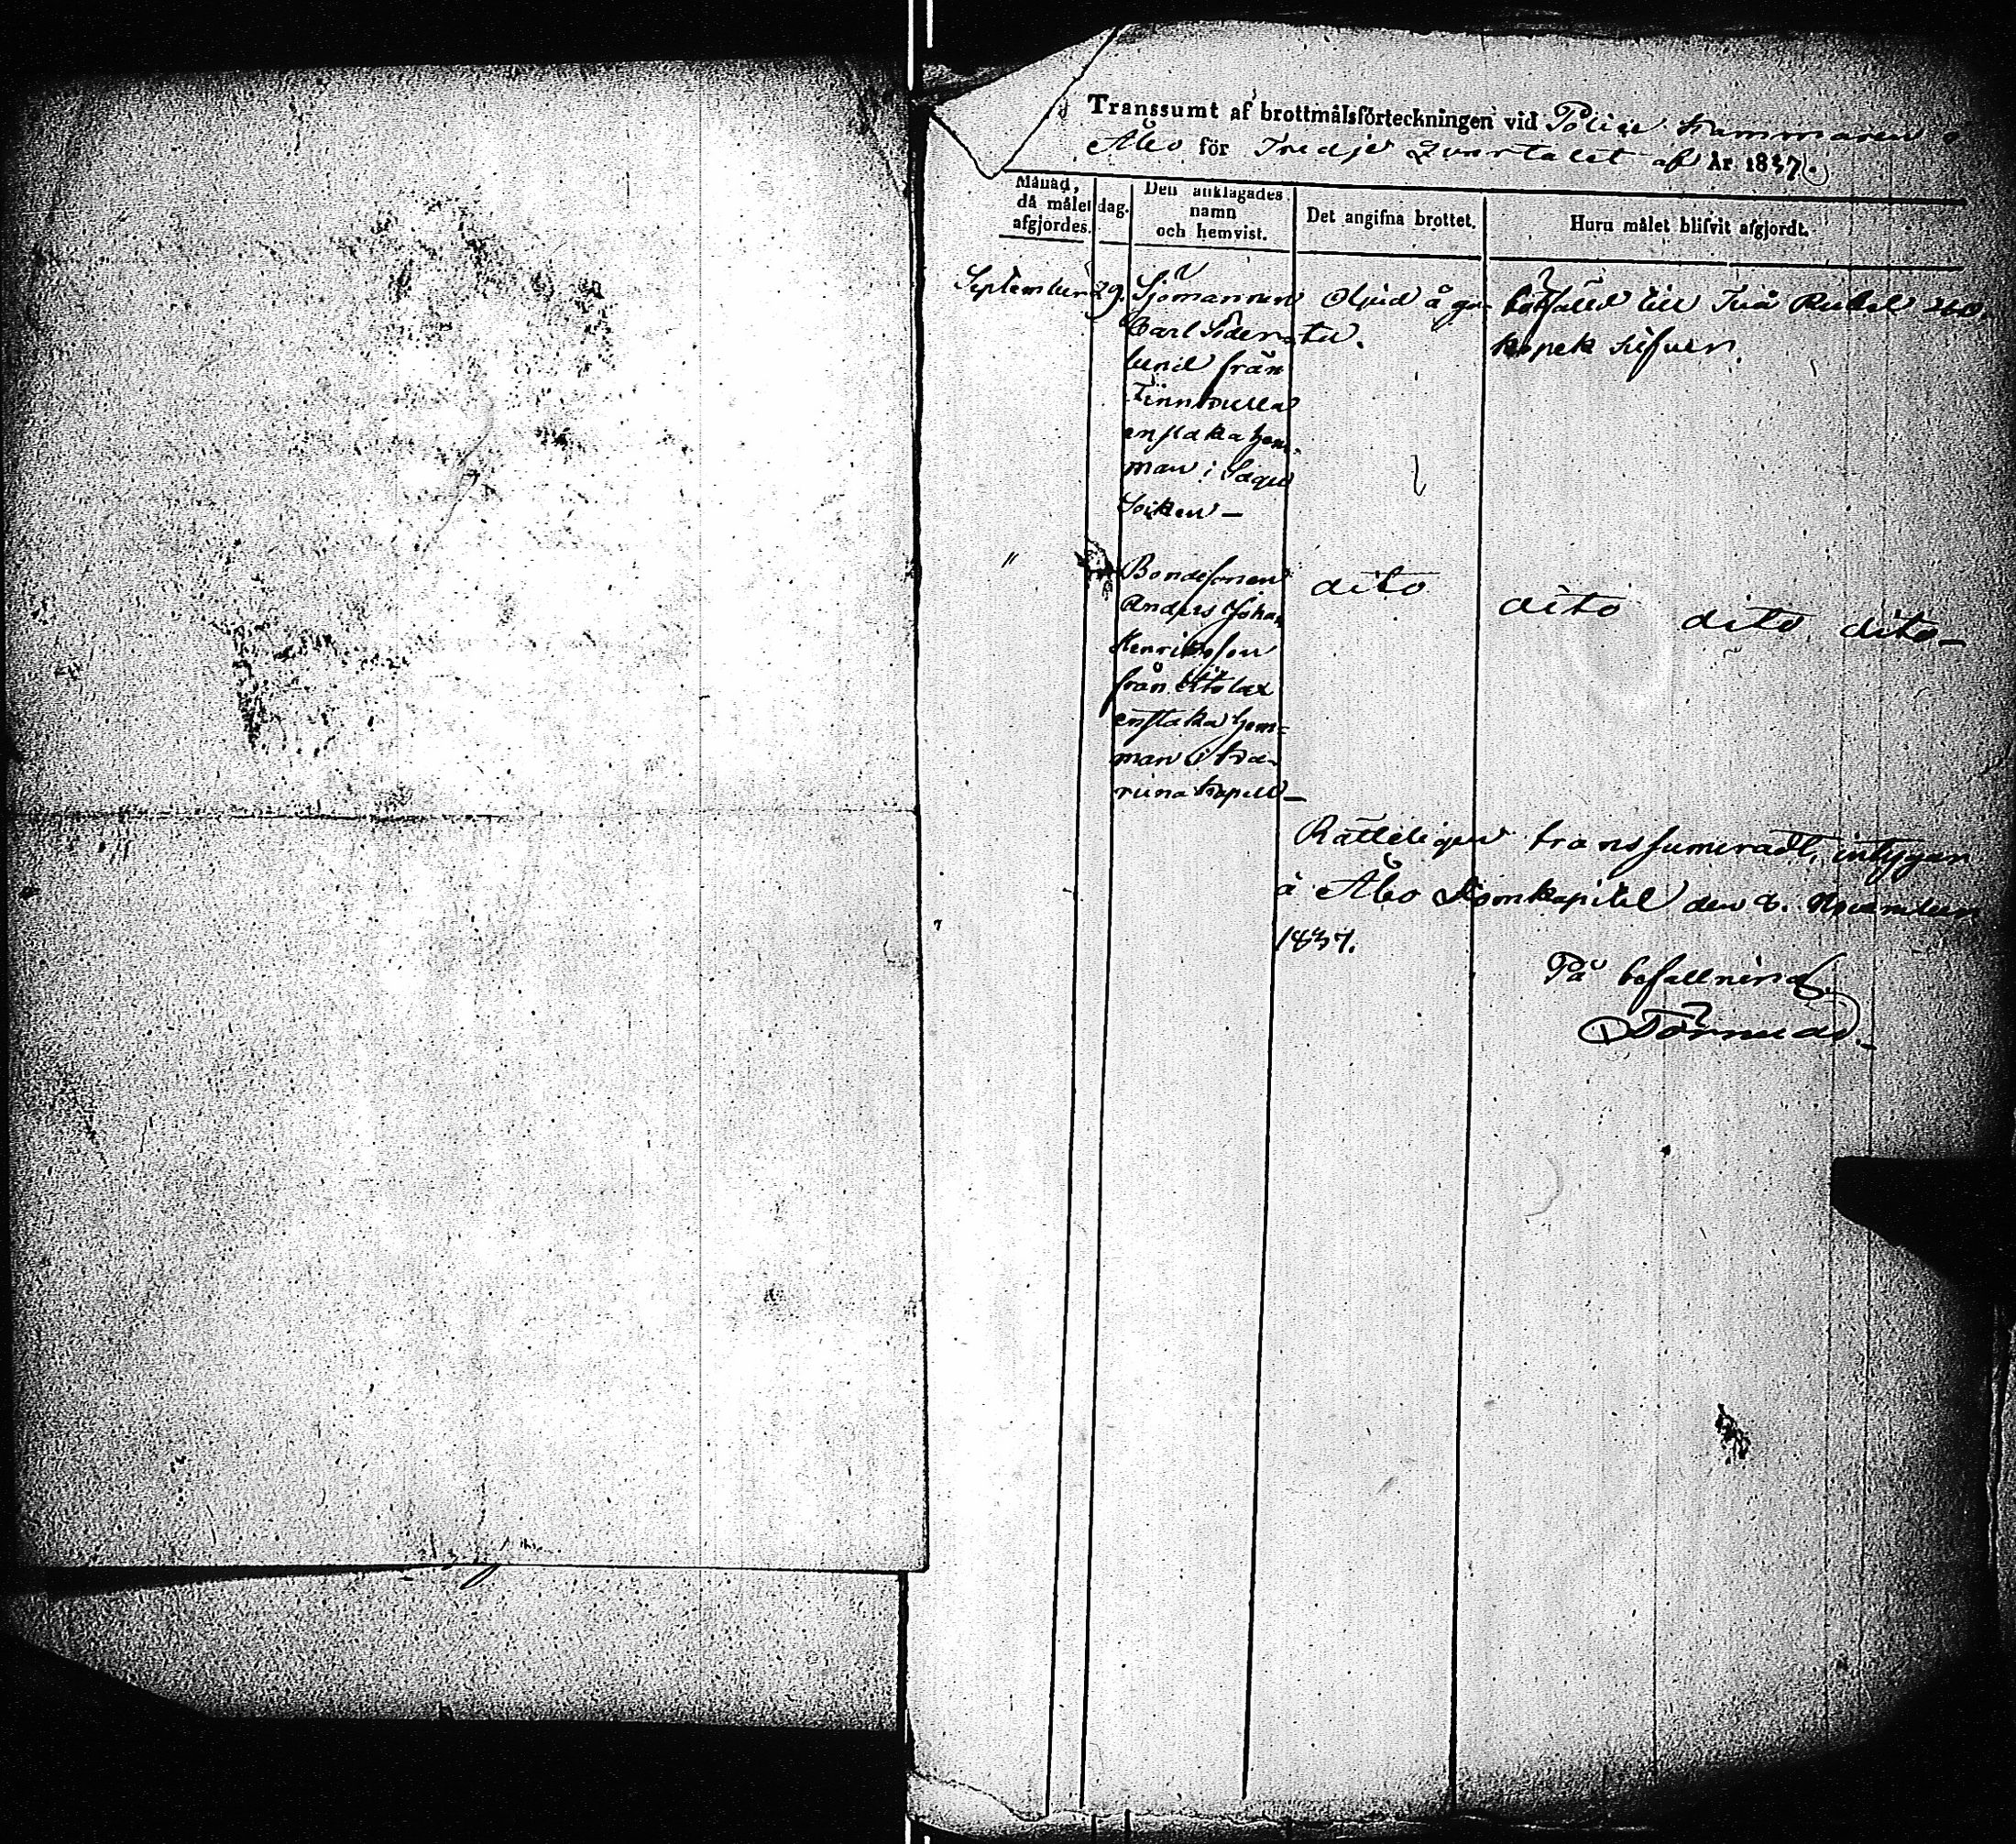 Transsumt af brottmålsförteckningen vid Police Kammaren i
Åbo för Tredje Quartalet af År 1837.
Månad,
då målet
afgjordes.
dag.
Den anklagades
namn
och hemvist.
Det angifna brottet.
Huru målet blifvit afgjordt.
September
29.
Sjömannen
Carl Söder-
lund från
enstaka hem-
man i Sagu
Socken —
Oljud å ga-
ta.
bötfälld till Två Rubel 40
kopek silfver.
"
Bondesonen
Anders Johan
Henriksson
från
enstaka hem-
man i
kapell —
dito
dito dito dito —
Rätteligen transsumeradt, intygar
å Åbo Domkapitel den 8. November
1837.
På befallning